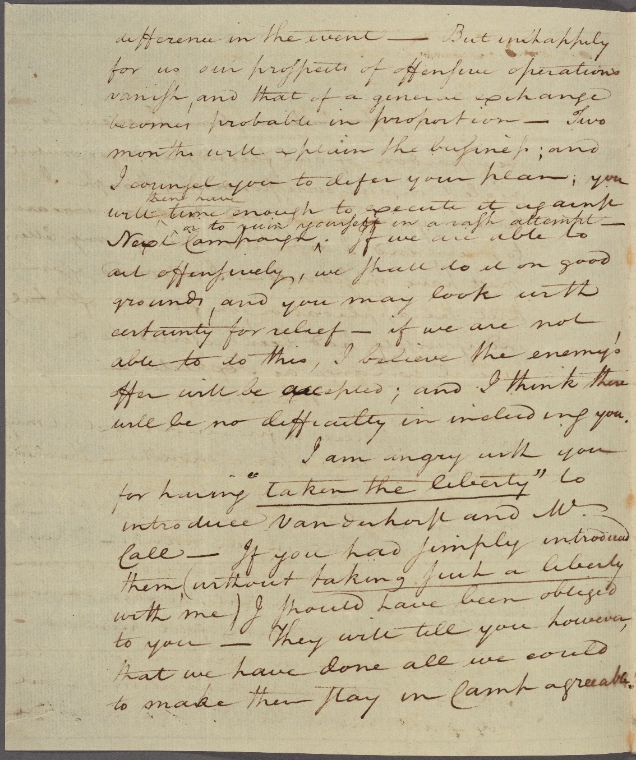 difference in the event — But unhappily
for us our prospects of offensive operations
vanish, and that of a general exchange
becomes probable in proportion — Two
months will explain the business; and
I counsel you to defer your plan; you
then have
will time enough to execute it against
or to ruin yourself in a rash attempt —
Next Campaign. If we are able to
act offensively, we shall do it on good
grounds, and you may look with
certainty for relief — if we are not
able to do this, I believe the enemy's
offer will be accepted; and I think there
will be no difficulty in including you.
I am angry with you
for having "taken the liberty" to
introduce Vanderhorst and Mr.
Call — If you had simply introduced
them (without taking such a liberty
with me) I should have been obliged
to you — They will tell you however,
that we have done all we could
to make their stay in Camp agreeable.